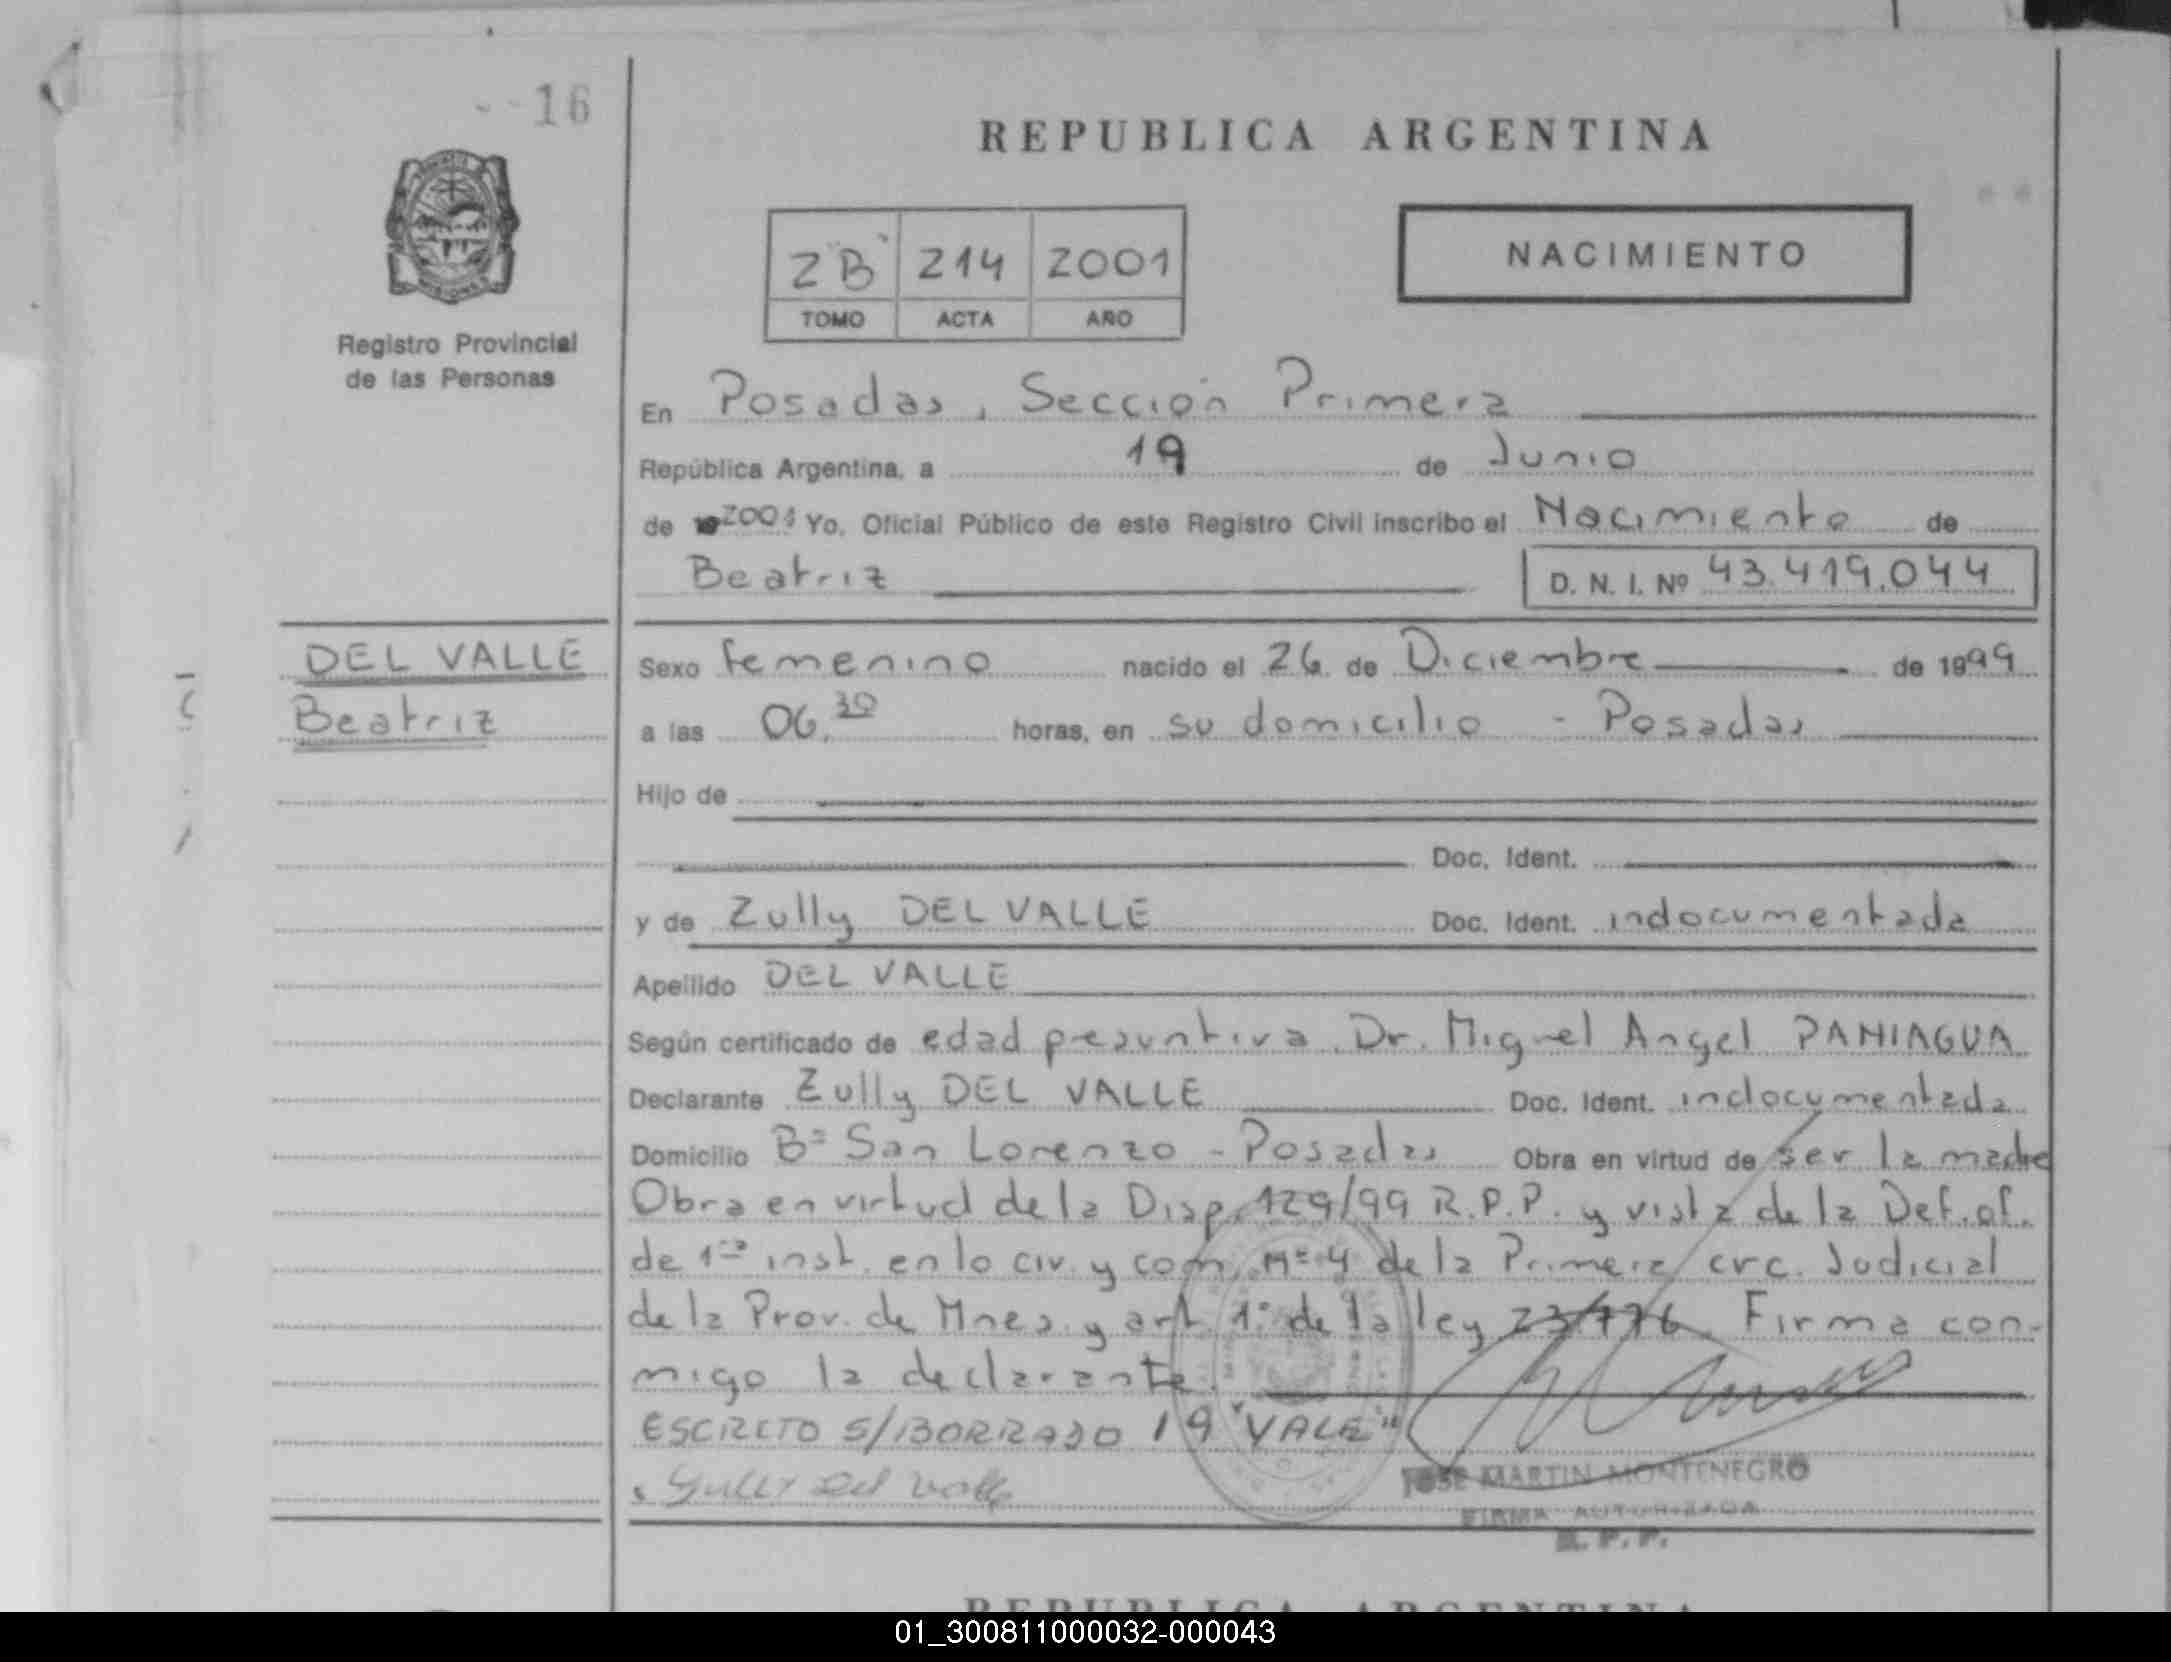 16
REPUBLICA ARGENTINA
2"B" 214 2001
TOMO ACTA AÑO
NACIMIENTO
Registro Provincial
de las Personas
En Posadas, Sección Primera
República Argentina, a 19 de Junio
de 2001 Yo, Oficial Público de este Registro Civil inscribo el Nacimiento de
Beatriz D. N. I. Nº 43.419.044
DEL VALLE
Beatriz
Sexo femenino nacido el 26 de Diciembre de 1999
a las 06,30 horas, en su domicilio - Posadas
Hijo de
Doc. Ident.
y de Zully DEL VALLE Doc. Ident. indocumentada
Apellido DEL VALLE
Según certificado de edad presuntiva. Dr. Miguel Angel PANIAGUA
Declarante Zully DEL VALLE Doc. Ident. indocumentada
Domicilio Bº San Lorenzo - Posadas Obra en virtud de ser la madre
Obra en virtud de la Disp. 129/99 R.P.P. y vista de la Def. of.
de 1ra inst. en lo civ. y com. Nº 4 de la Primera circ. Judicial
de la Prov. de Mnes. y art. 1º de la ley 23776. Firma con-
migo la declarante.
ESCRITO S/BORRADO 19 "VALE"
Zully Del Valle
JOSE MARTIN MONTENEGRO
FIRMA AUTORIZADA
R. P. P.
REPUBLICA ARGENTINA
01_300811000032-000043